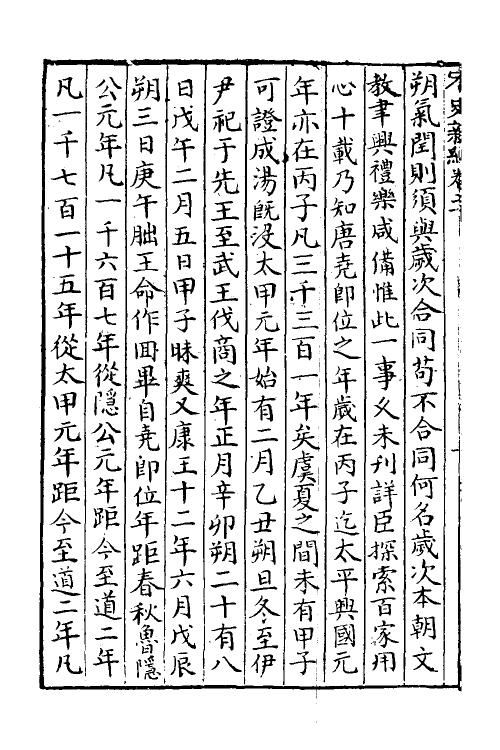 朔氣閏則須與歲次合同苟不合同何名歲次本朝文
教聿興禮樂咸備惟此一事久未刋詳臣探索百家用
心十載乃知唐堯卽位之年歲在丙子迄太平興國元
年亦在丙子凡三千三百一年矣虞夏之間未有甲子
可證成湯旣沒太甲元年始有二月乙丑朔旦冬至伊
尹祀于先王至武王伐商之年正月辛卯朔二十有八
日戊午二月五日甲子昧爽又康王十二年六月戊辰
朔三日庚午朏王命作冊畢自堯卽位年距春秋魯隱
公元年凡一千六百七年從隱公元年距今至道二年
凡一千七百一十五年從太甲元年距今至道二年凡